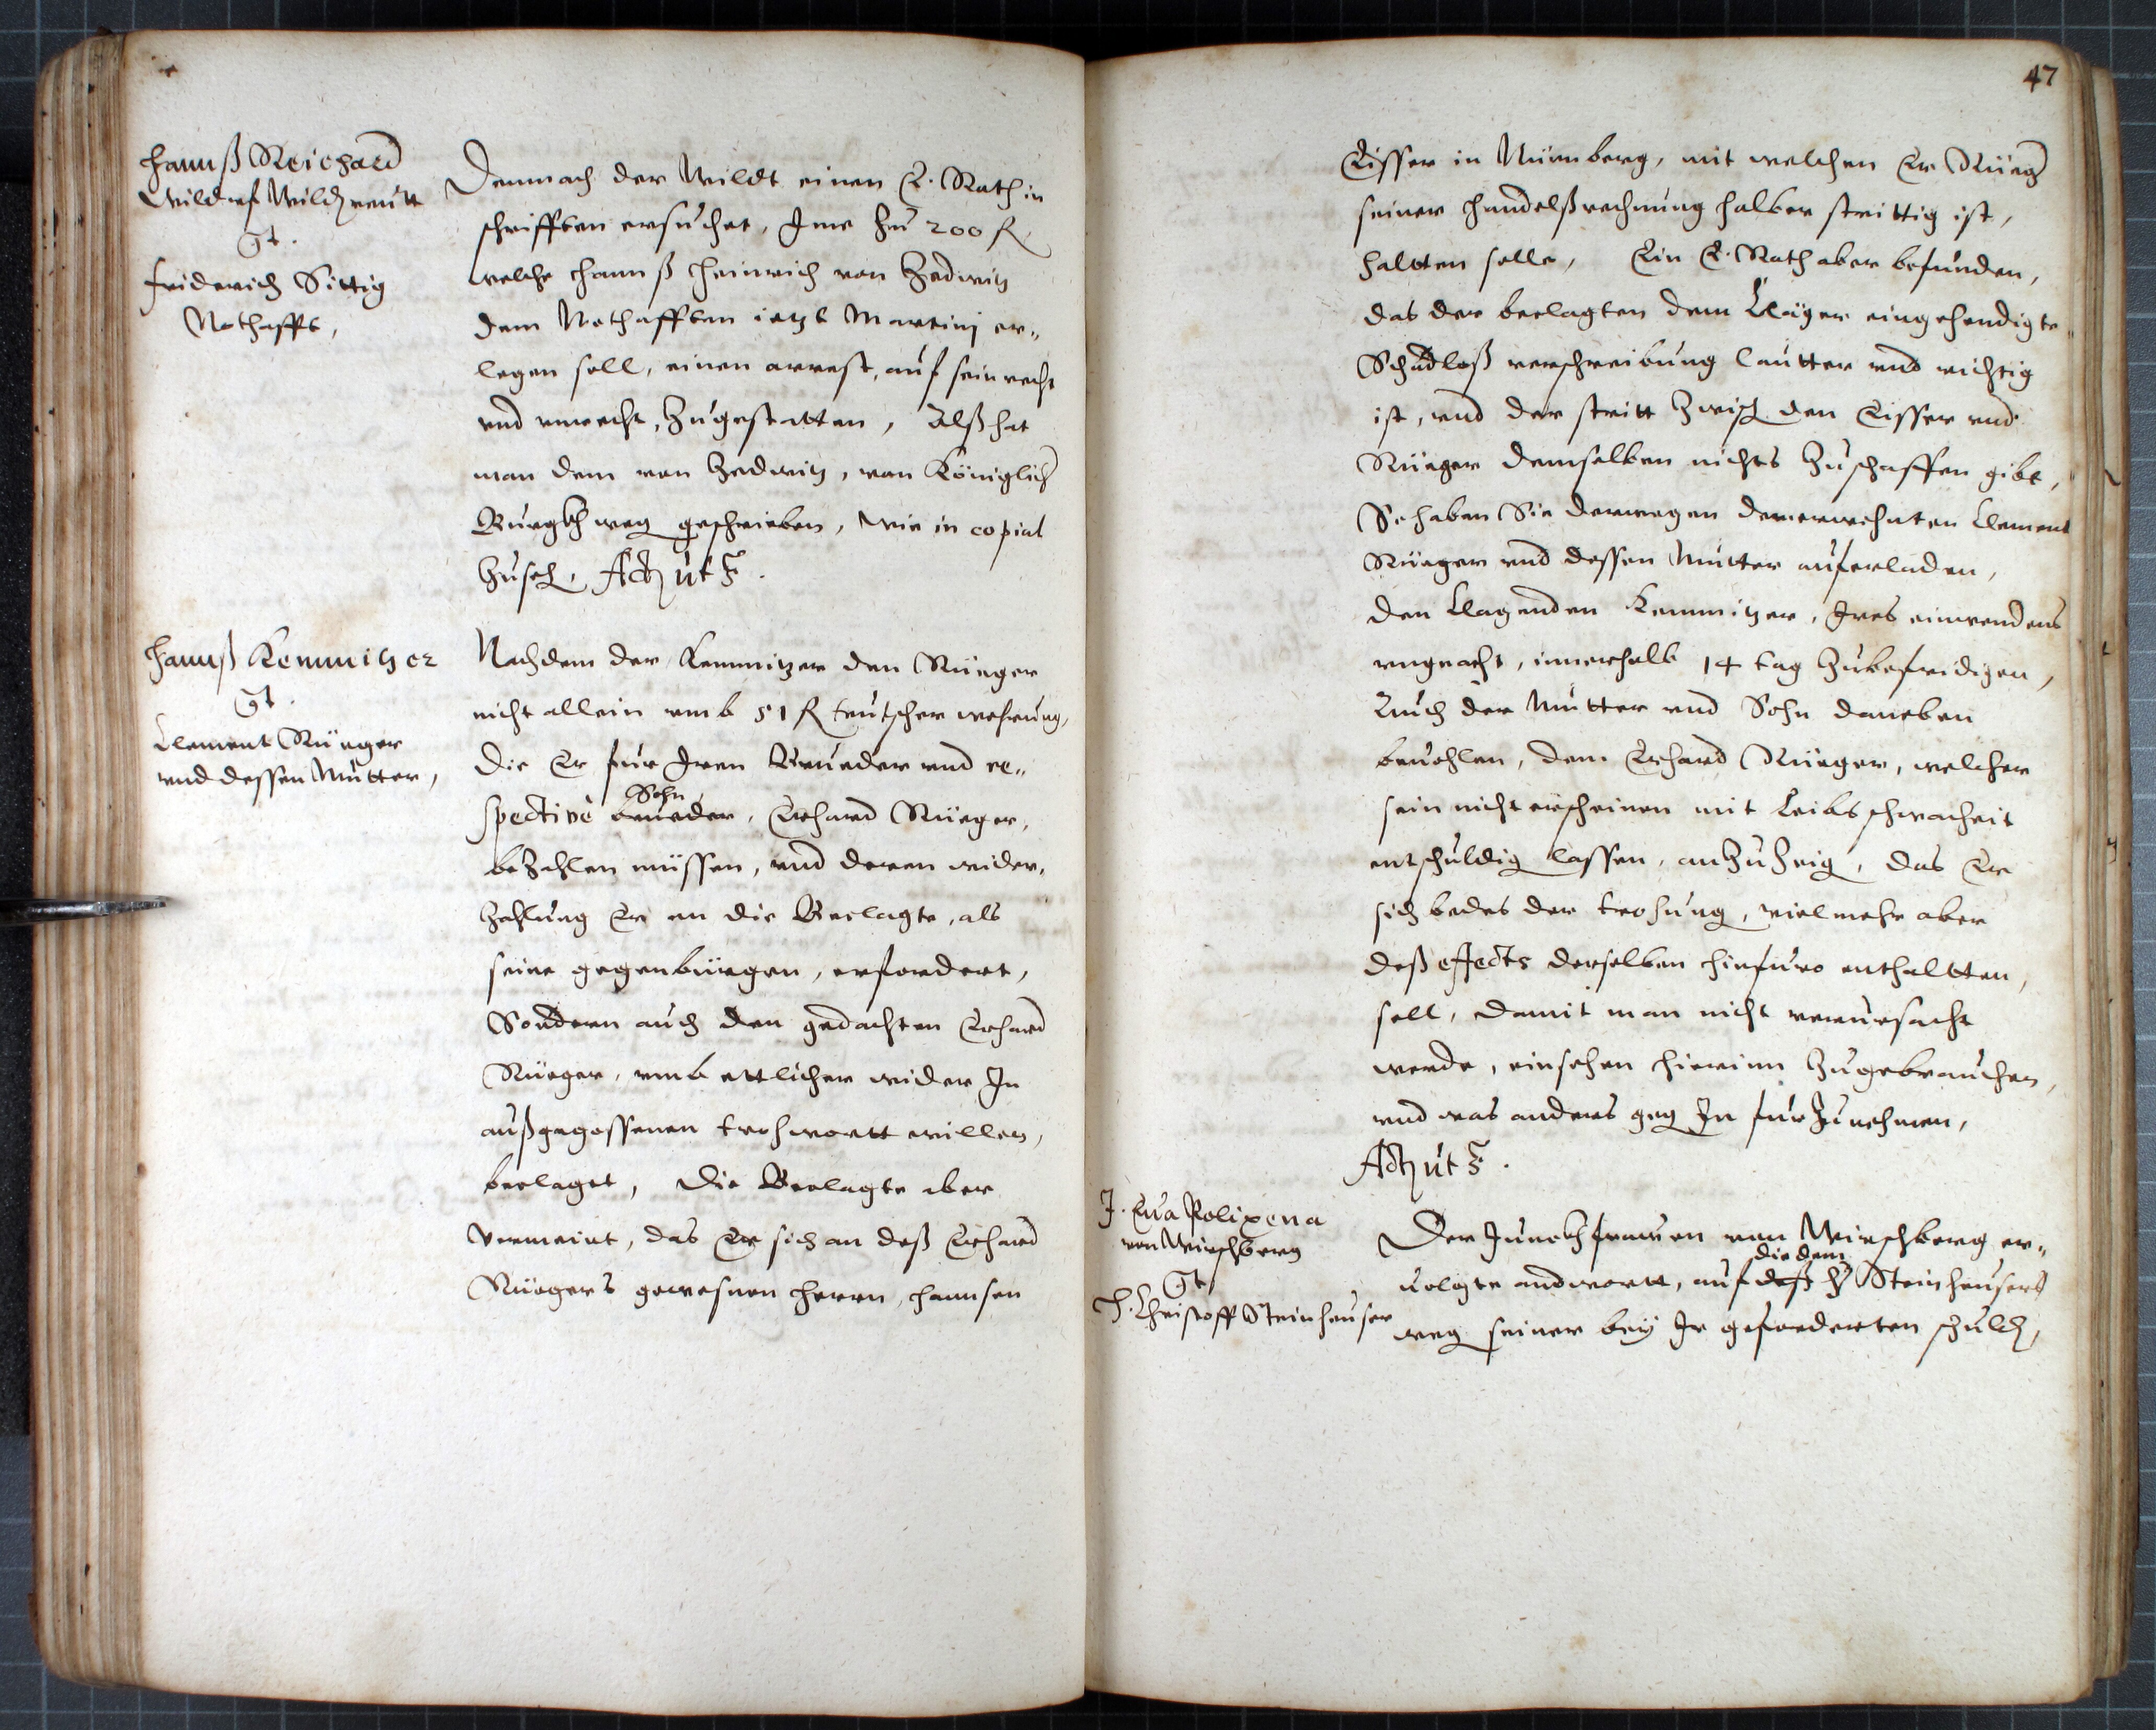 Hannß Reichard
Wild uf Wildenreüt
Ct.
Friderich Sittig
Nothafft,
Demnach der Wildt einen E. Rath in
schrifften ersucht, Ime zu 200 fl
welche Hannß Heinrich von Zedwitz
dem Nothafften ietzt Martinj er„
legen soll, einen arrest, auf sein recht
vnd vnrecht, zugestatten, Alß hat
man dem von Zedwitz, von Königlich
Burgkh weg geschrieben, wie in copial
zuseh, Act ut s.
Hannß Kemnitzer
Ct.
Clement Rürger
vnd dessen Mutter,
Nachdem der Kemnitzer den Rürger
nicht allein vmb 51 fl teutscher wehrung,
die Er für Iren Brueder vnd re„
spective Sohn brueder, Erhard Rürger,
bezahlen müssen, vnd deren wider,
zahlung Er an die Beclagte, als
seine gegenbürgen, erfordert,
Sondern auch den gedachten Erhard
Rürger, vmb ettlicher wider In
außgegossenen trohwortt willen,
beclaget, Die Beclagte aber
vermeint, das Er sich an deß Erhard
Rürgers gewesnen Herrn, Hannsen
47
Eisser in Nürnberg, mit welchen Er Rürg
seiner Handelßrechnung halber strittig ist,
haltten solle, Ein E. Rath aber befunden,
das der beclagten dem Cläger eingehendigte„
Schadloß verschreibung lautter vnd richtig
ist, vnd der stritt zwisch den Eisser vnd
Rürger demselben nichts zuschaffen gibt,
So haben Sie derwegen dem erwehnten Clement
Rürger vnd dessen Mutter auferladen,
den Clagenden Kemnitzer, Ires einwendens
vngeacht, innerhalb 14 tag zubefridigen,
Auch der Mutter vnd Sohn daneben
beuohlen, dem Erhard Rürger, welcher
sein nicht erscheinen mit Leibs schwacheit
entschuldig lassen, anzuzeig, das Er
sich bedes der trohung, vielmehr aber
deß effects derselben hinfuro enthaltten,
soll, damit man nicht verursacht
werde, einsehen hierinn zugebrauchen,
vnd was anders geg In furzunehmen,
Act ut s.
J. Eua Polixena
von Wirschberg
Ct
H. Christoff Steinheuser
Der Junckhfrawen von Wirschberg er„
uolgte andwortt, auf die dem deß H Steinheusers
weg seiner bey Ir geforderten schuld,